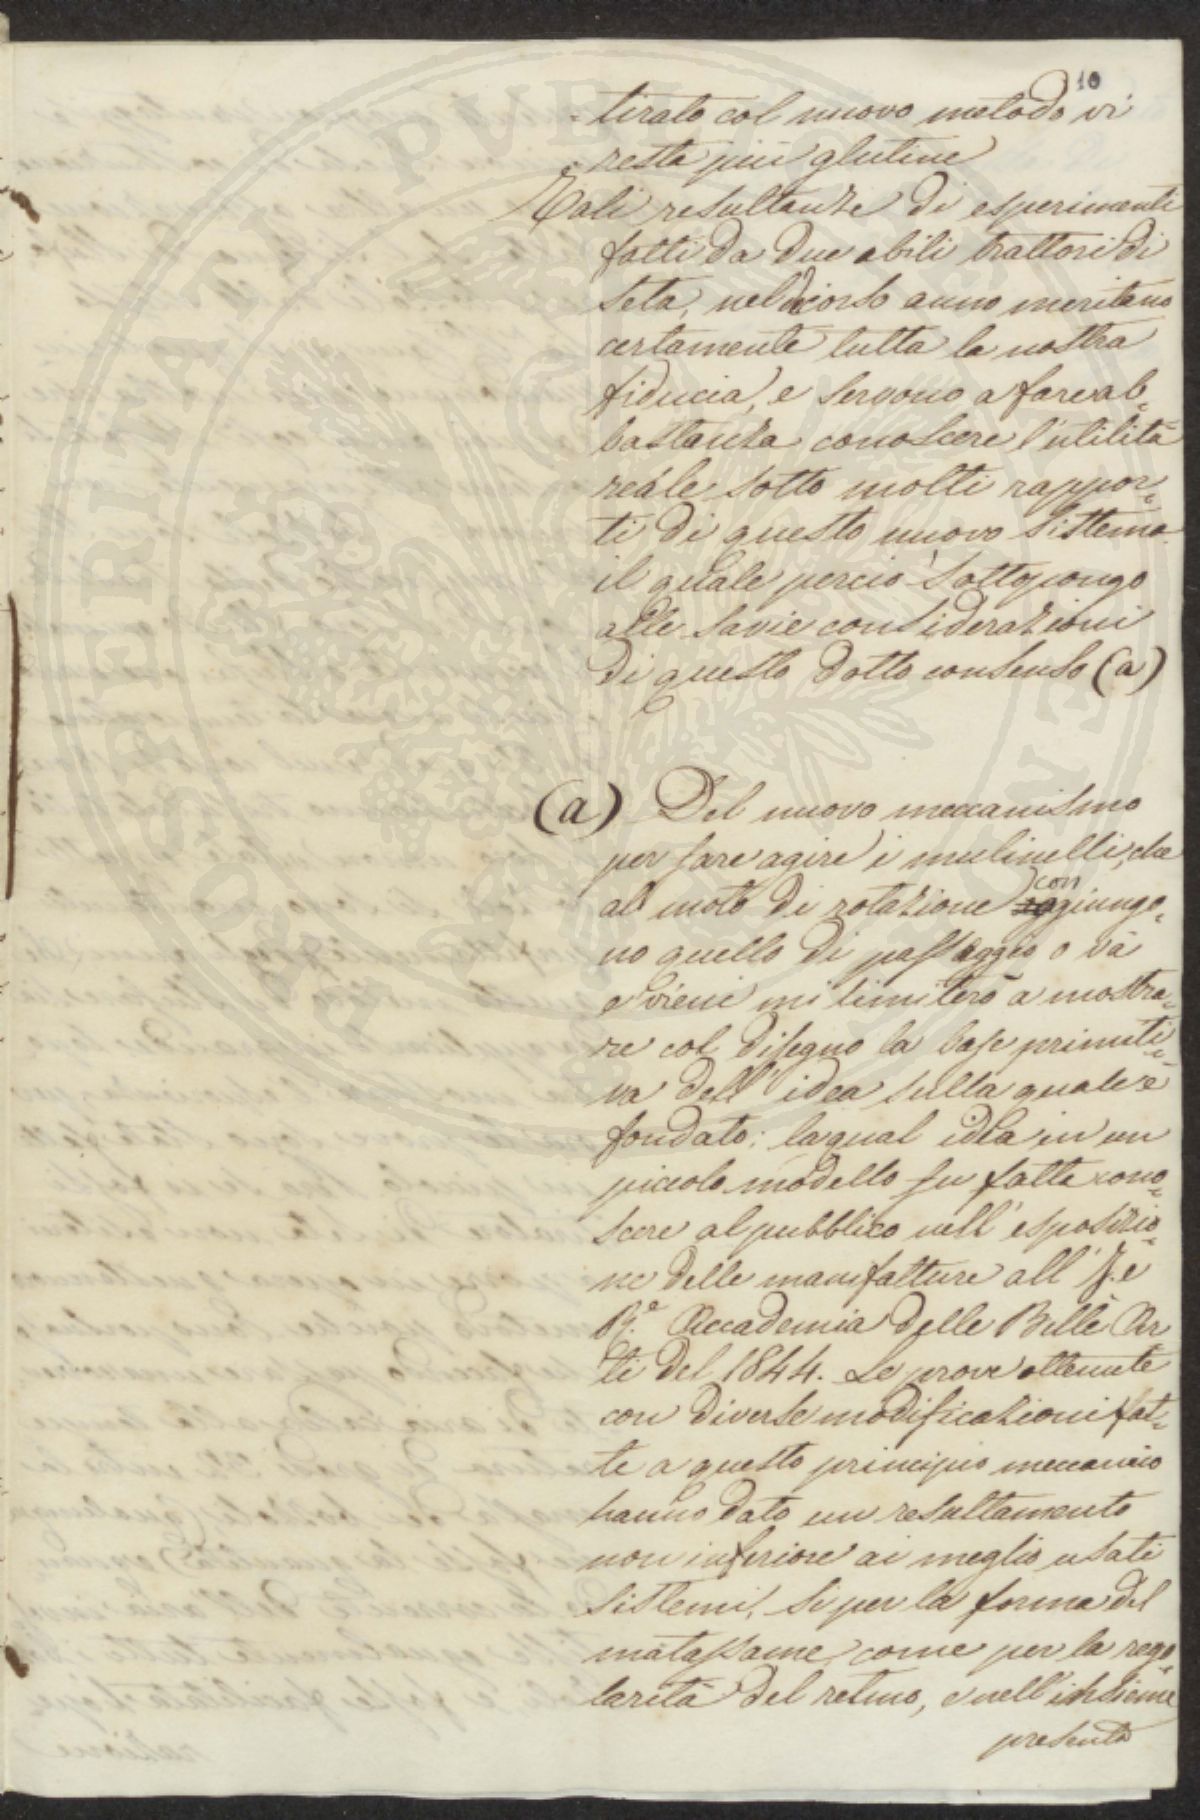 10
tirato col nuovo metodo vi
resta più glutine
Tali resultanze di esperimenti
fatti da due abili trattori di
seta, nel decorso anno meritano
certamente tutta la nostra
fiducia, e servono a fare ab=
bastanza conoscere l'utilità
reale sotto molti rappor=
ti di questo nuovo sistema
il quale perciò sottopongo
alle savie considerazioni
di questo dotto consenso (a)
(a) Del nuovo meccanismo
per fare agire i mulinelli, che
al moto di rotazione congiungo=
no quello di passaggio o và
e vieni mi limiterò a mostra=
re col disegno la base primiti=
va dell'idea sulla quale è
fondato; la qual idea in un
piccolo modello fu fatta cono=
scere al pubblico nell'esposizio=
ne delle manifatture all'I. e
R.e Accademia delle Belle Ar=
ti del 1844. Le prove ottenute
con diverse modificazioni fat=
te a questo principio meccanico
hanno dato un resultamento
non inferiore ai meglio usati
sistemi, si per la forma del
matassame, come per la rego=
larità del retino, e nell'insieme
presenta
PROSPERITATI PVBLICAE